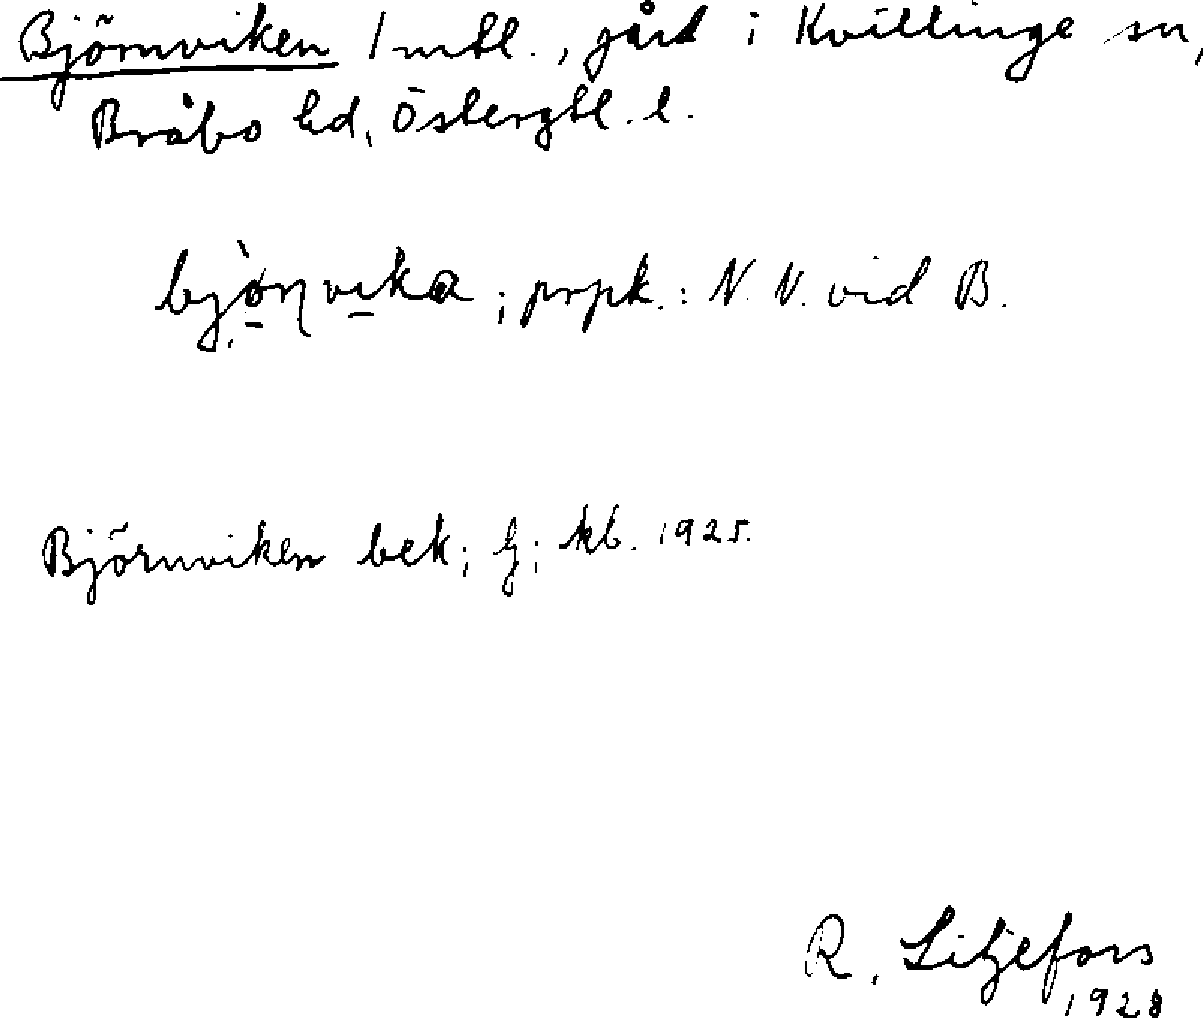 Björnviken 1 mtl., gård i Kvillinge sn,
Bråbo hd, Östergtl. l.
bjònvika ; prpk.: N. N. vid B.
Björnviken bek; kb. 1925.
R. Liljefors
1928